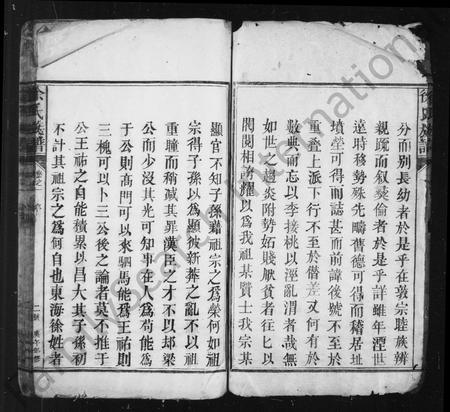 分而别長幼者於是乎在敦宗睦族辨
親疏而叙彛倫者於是乎詳雖年湮世
遠時移勢殊先疇舊德可得而稽居址
墳塋可得而誌甚而前諱後號不至於
重叠上派下行不至於僭差又何有於
數典而忘以李接桃以涇亂渭者哉無
如世之趨炎附勢妬賤厭貧者往匕以
閥閱相誇耀以爲我祖某賢士我宗某
顯官不知子孫藉祖宗之爲榮何如祖
宗得子孫以爲顯彼新莽之亂不以祖
重瞳而稱藏其罪漢臣之才不以却梁
公而少沒其光可知事在人爲苟能爲
于公則高門可以來駟馬能爲王祐則
三槐可以卜三公後之論者莫不推于
公王祐之自能積累以昌大其子孫初
不計其祖宗之爲何自也東海徐姓者
徐氏族譜
卷之
序
二
徐氏族譜
research International